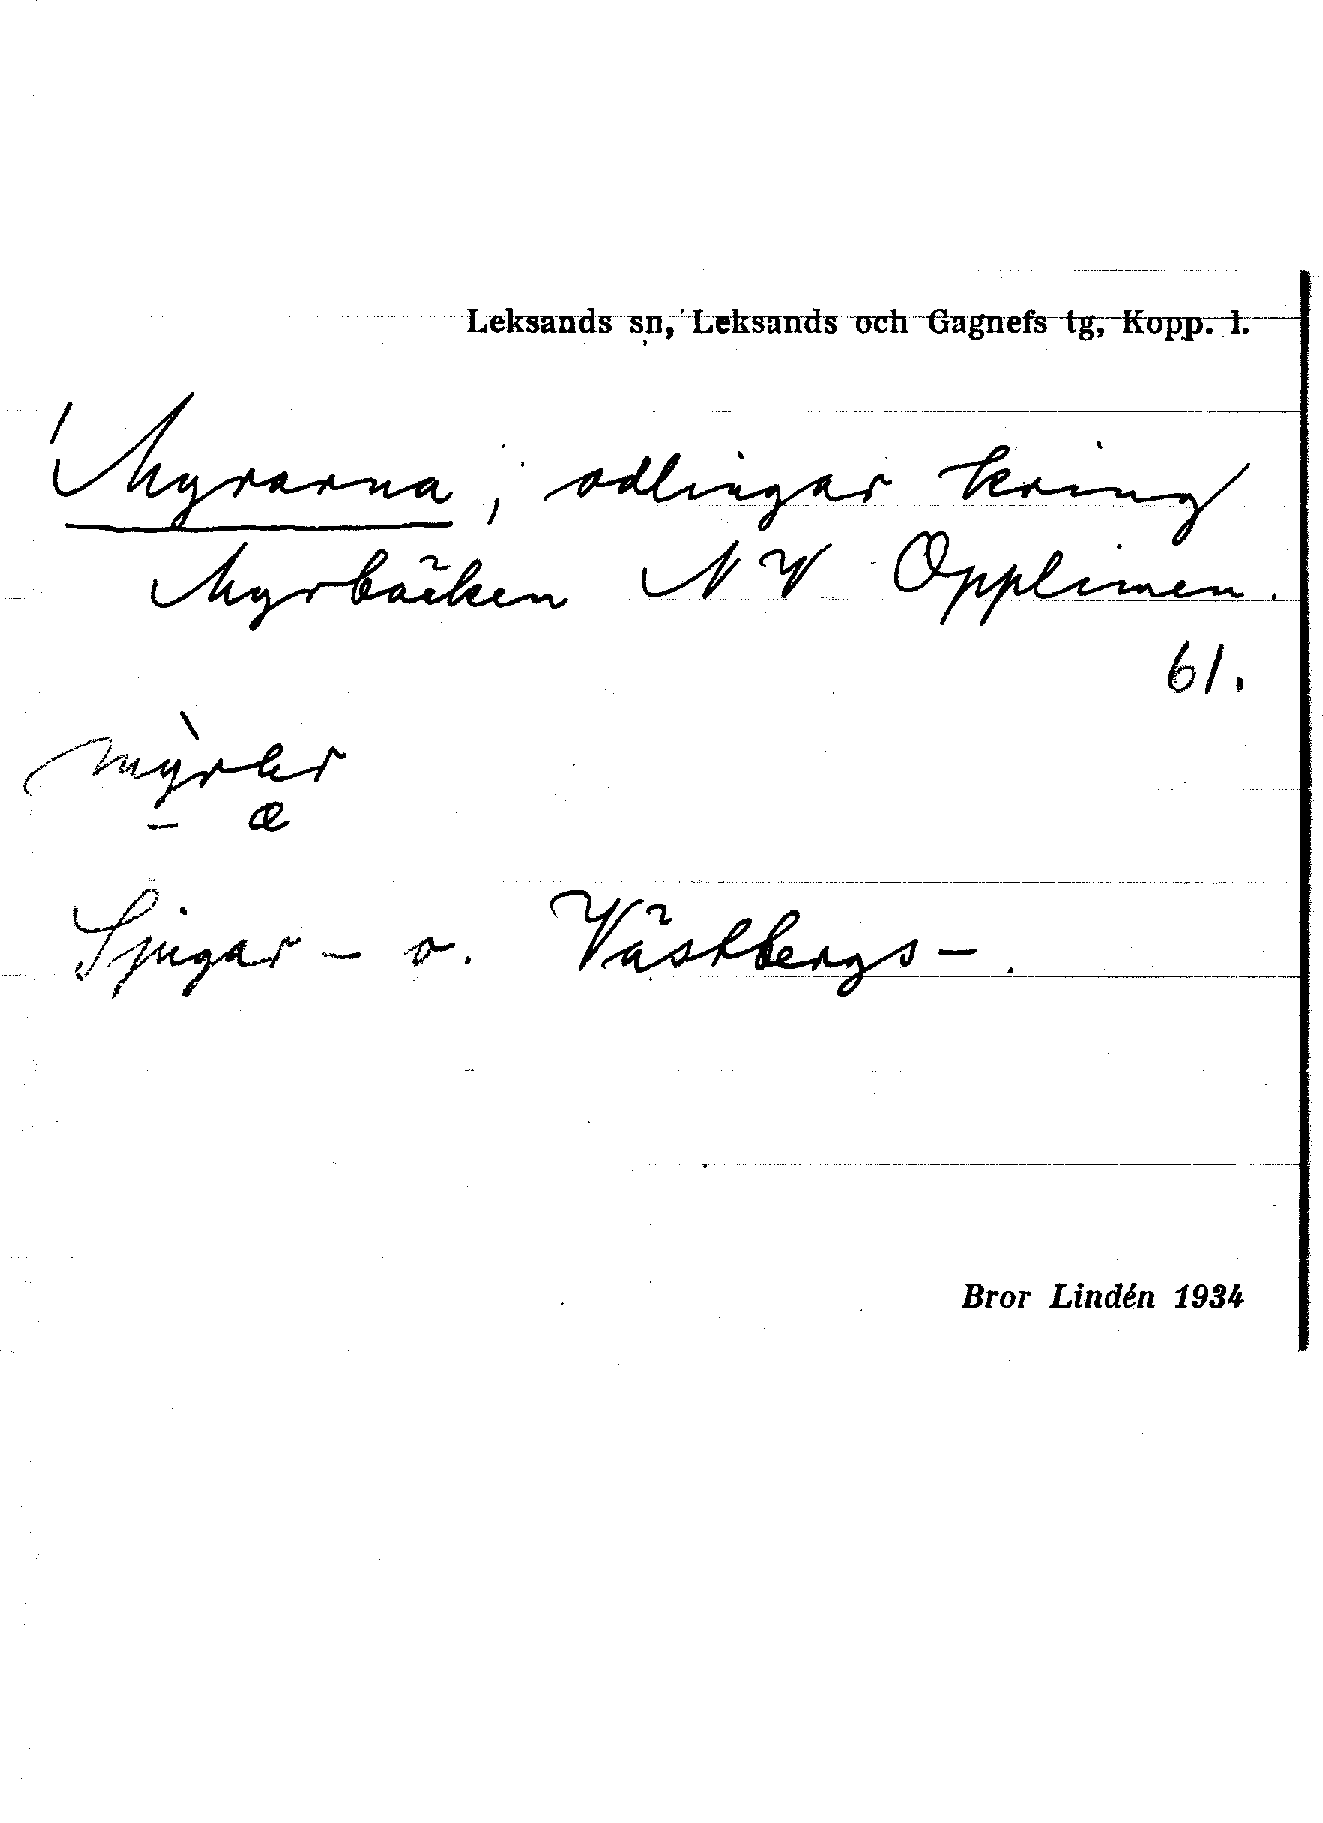 Leksands sn, Leksands och Gagnefs tg, Kopp. l.
Myrarna, odlingar kring
Myrbäcken NV Opplimen.
61.
mỳrer
– æ
Sjugar- o. Västbergs-.
Bror Lindén 1934